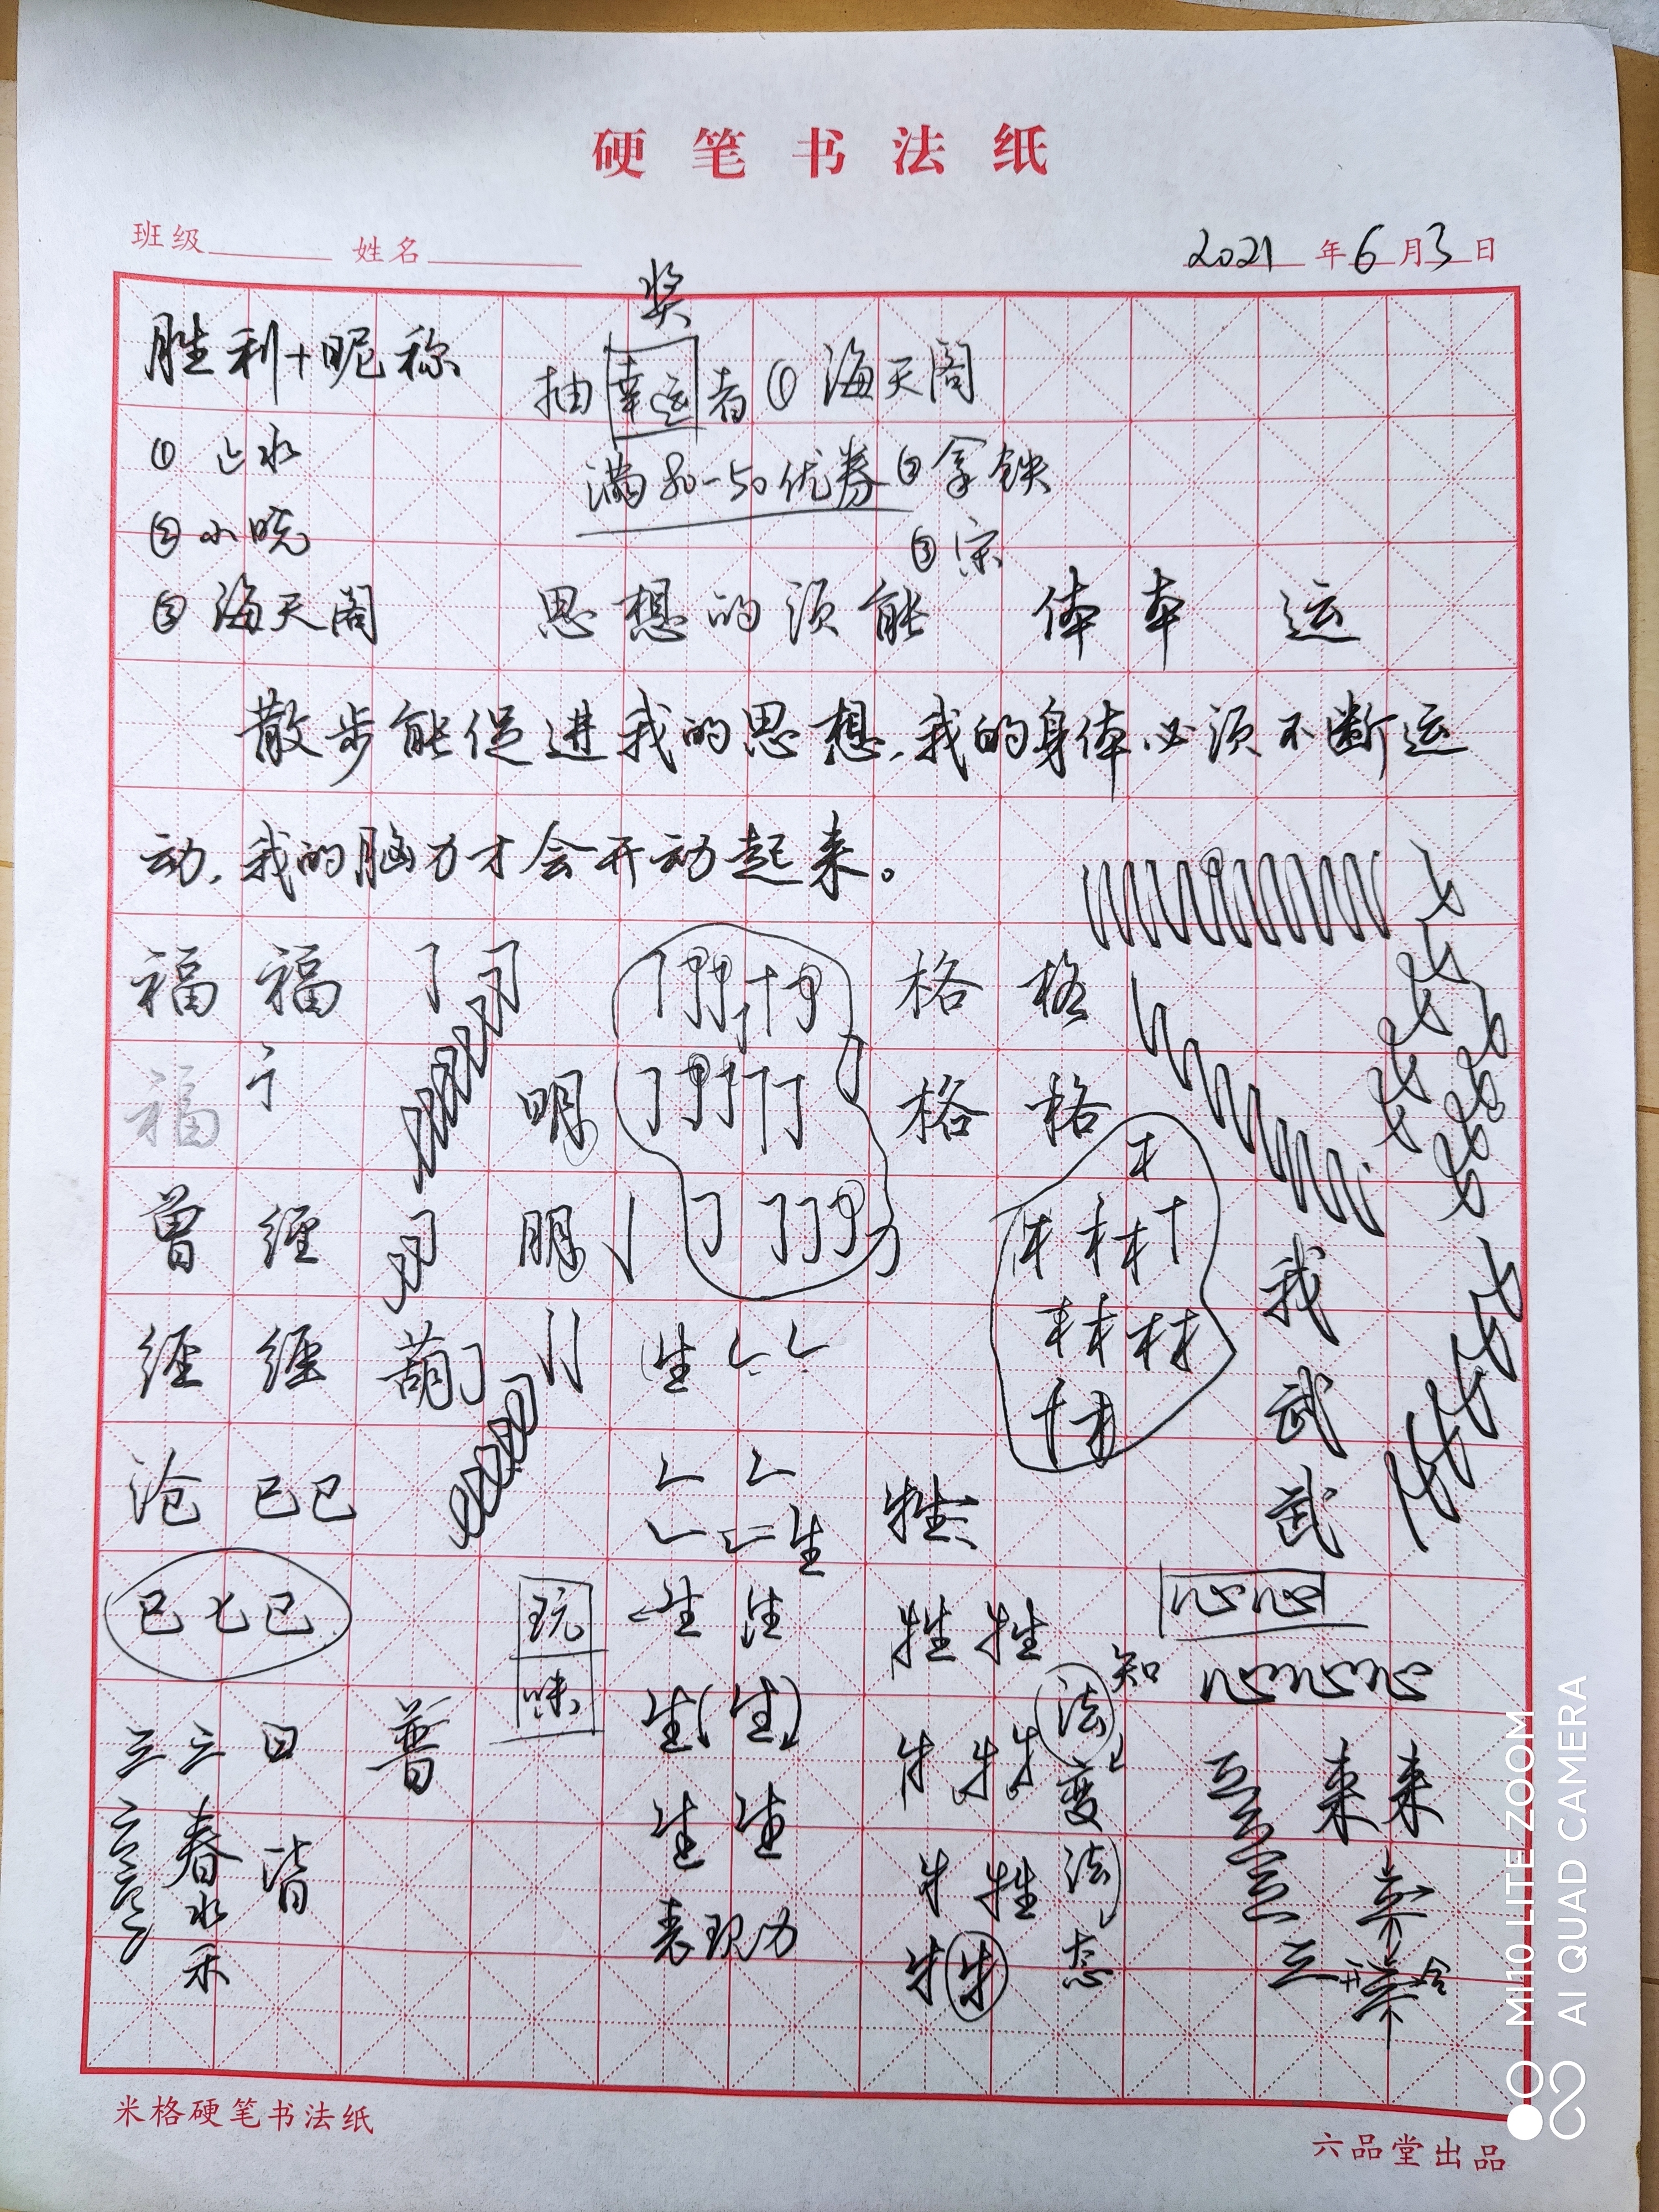 硬笔书法纸
班级 姓名 2021年6月3日
奖
胜利+昵称 抽幸运者 ① 海天阁
① 上水 满80-50优券 ②拿铁
② 小晓 ③ 宋
③ 海天阁 思想的须能 体本 运
散步能促进我的思想,我的身体必须不断运
动,我的脑力才会开动起来。
福 福 格 格
福 明 格 格
曾 经 服 我
经 经 葫 生 武
沧 巳巳 生 牲 武
巳 七 巳 玩 生 生 牲 牲 心心
味 知 心心心
三 三 日 普 生 生 牛 牛 法 来 来
春 皆 生 生 牛 牲 变 法
水 表现力 牛 牛 态
禾
米格硬笔书法纸
六品堂出品
MI 10 LITE ZOOM
AI QUAD CAMERA